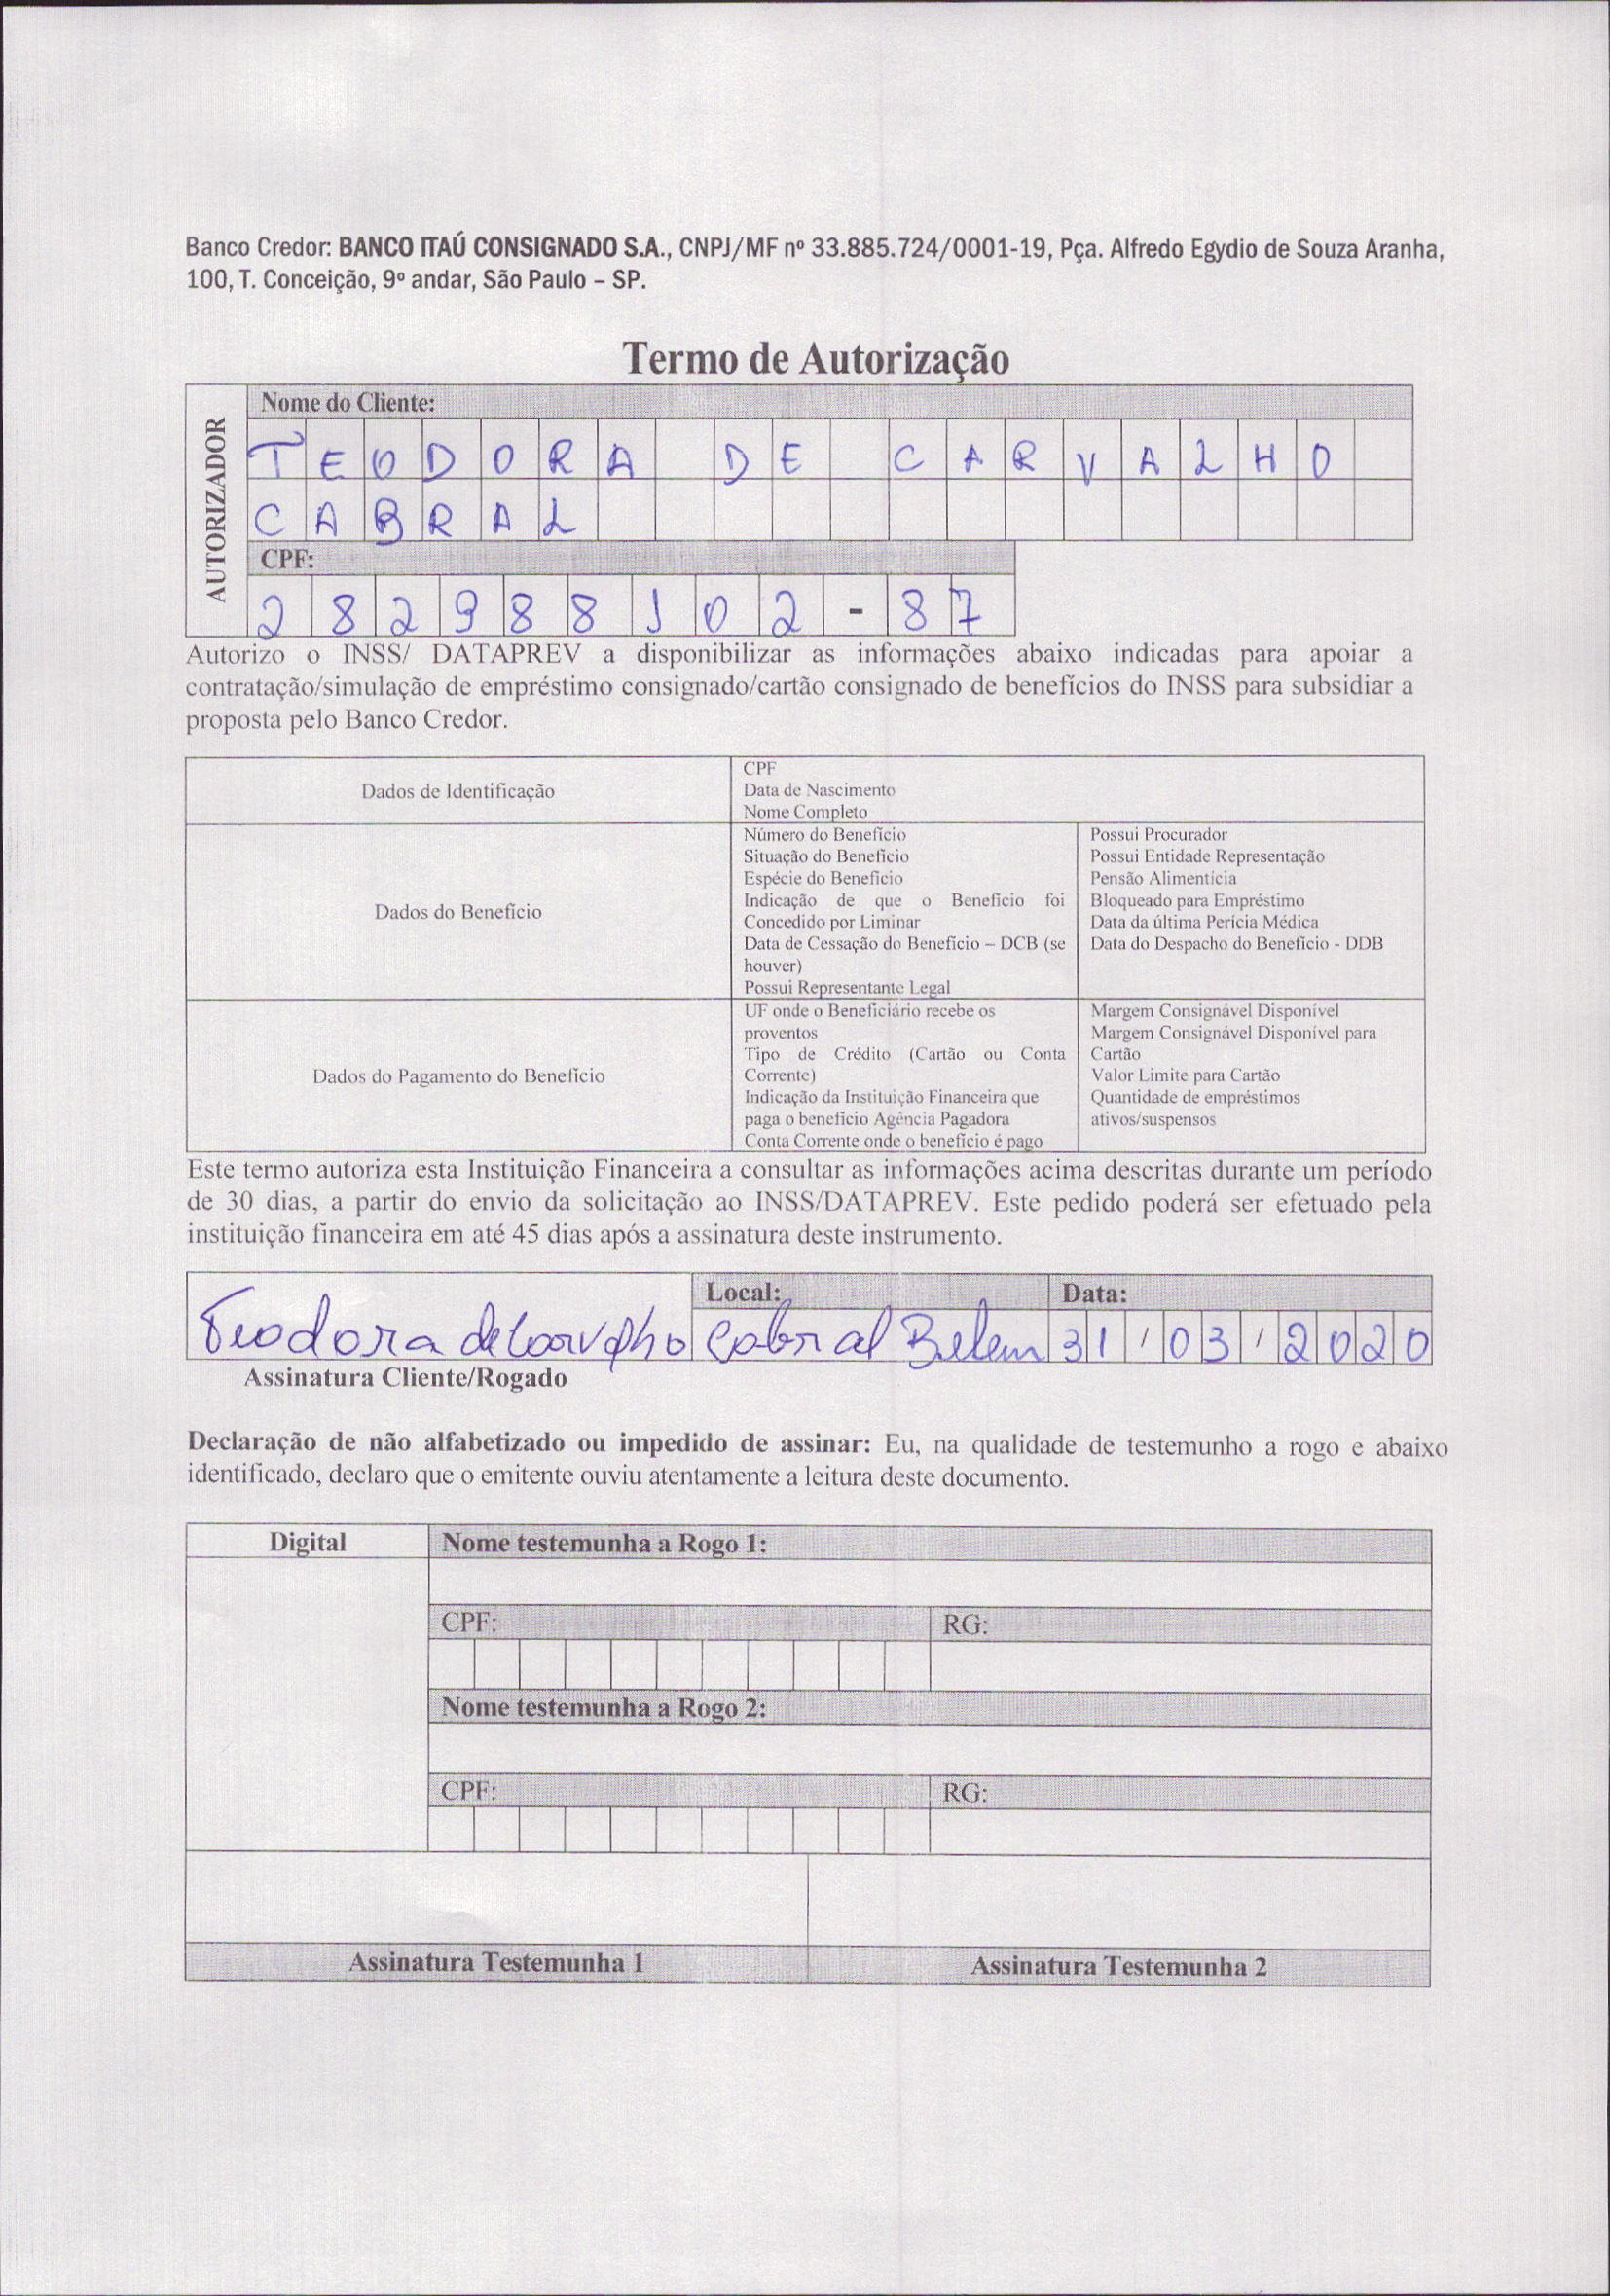 Banco Credor: BANCO ITAÚ CONSIGNADO S.A., CNPJ/MF nº 33.885.724/0001-19, Pça. Alfredo Egydio de Souza Aranha,
100, T. Conceição, 9º andar, São Paulo – SP.
Termo de Autorização
AUTORIZADOR
Nome do Cliente:
TEODORA DE CARVALHO
CABRAL
CPF:
282988102-87
Autorizo o INSS/ DATAPREV a disponibilizar as informações abaixo indicadas para apoiar a
contratação/simulação de empréstimo consignado/cartão consignado de benefícios do INSS para subsidiar a
proposta pelo Banco Credor.
Dados de Identificação
CPF
Data de Nascimento
Nome Completo
Dados do Benefício
Número do Benefício
Situação do Benefício
Espécie do Benefício
Indicação de que o Benefício foi
Concedido por Liminar
Data de Cessação do Benefício – DCB (se
houver)
Possui Representante Legal
Possui Procurador
Possui Entidade Representação
Pensão Alimentícia
Bloqueado para Empréstimo
Data da última Perícia Médica
Data do Despacho do Benefício - DDB
Dados do Pagamento do Benefício
UF onde o Beneficiário recebe os
proventos
Tipo de Crédito (Cartão ou Conta
Corrente)
Indicação da Instituição Financeira que
paga o benefício Agência Pagadora
Conta Corrente onde o benefício é pago
Margem Consignável Disponível
Margem Consignável Disponível para
Cartão
Valor Limite para Cartão
Quantidade de empréstimos
ativos/suspensos
Este termo autoriza esta Instituição Financeira a consultar as informações acima descritas durante um período
de 30 dias, a partir do envio da solicitação ao INSS/DATAPREV. Este pedido poderá ser efetuado pela
instituição financeira em até 45 dias após a assinatura deste instrumento.
Local: Data:
Teodora de Carvalho Cabral Belem 31/03/2020
Assinatura Cliente/Rogado
Declaração de não alfabetizado ou impedido de assinar: Eu, na qualidade de testemunho a rogo e abaixo
identificado, declaro que o emitente ouviu atentamente a leitura deste documento.
Digital
Nome testemunha a Rogo 1:
CPF: RG:
Nome testemunha a Rogo 2:
CPF: RG:
Assinatura Testemunha 1 Assinatura Testemunha 2